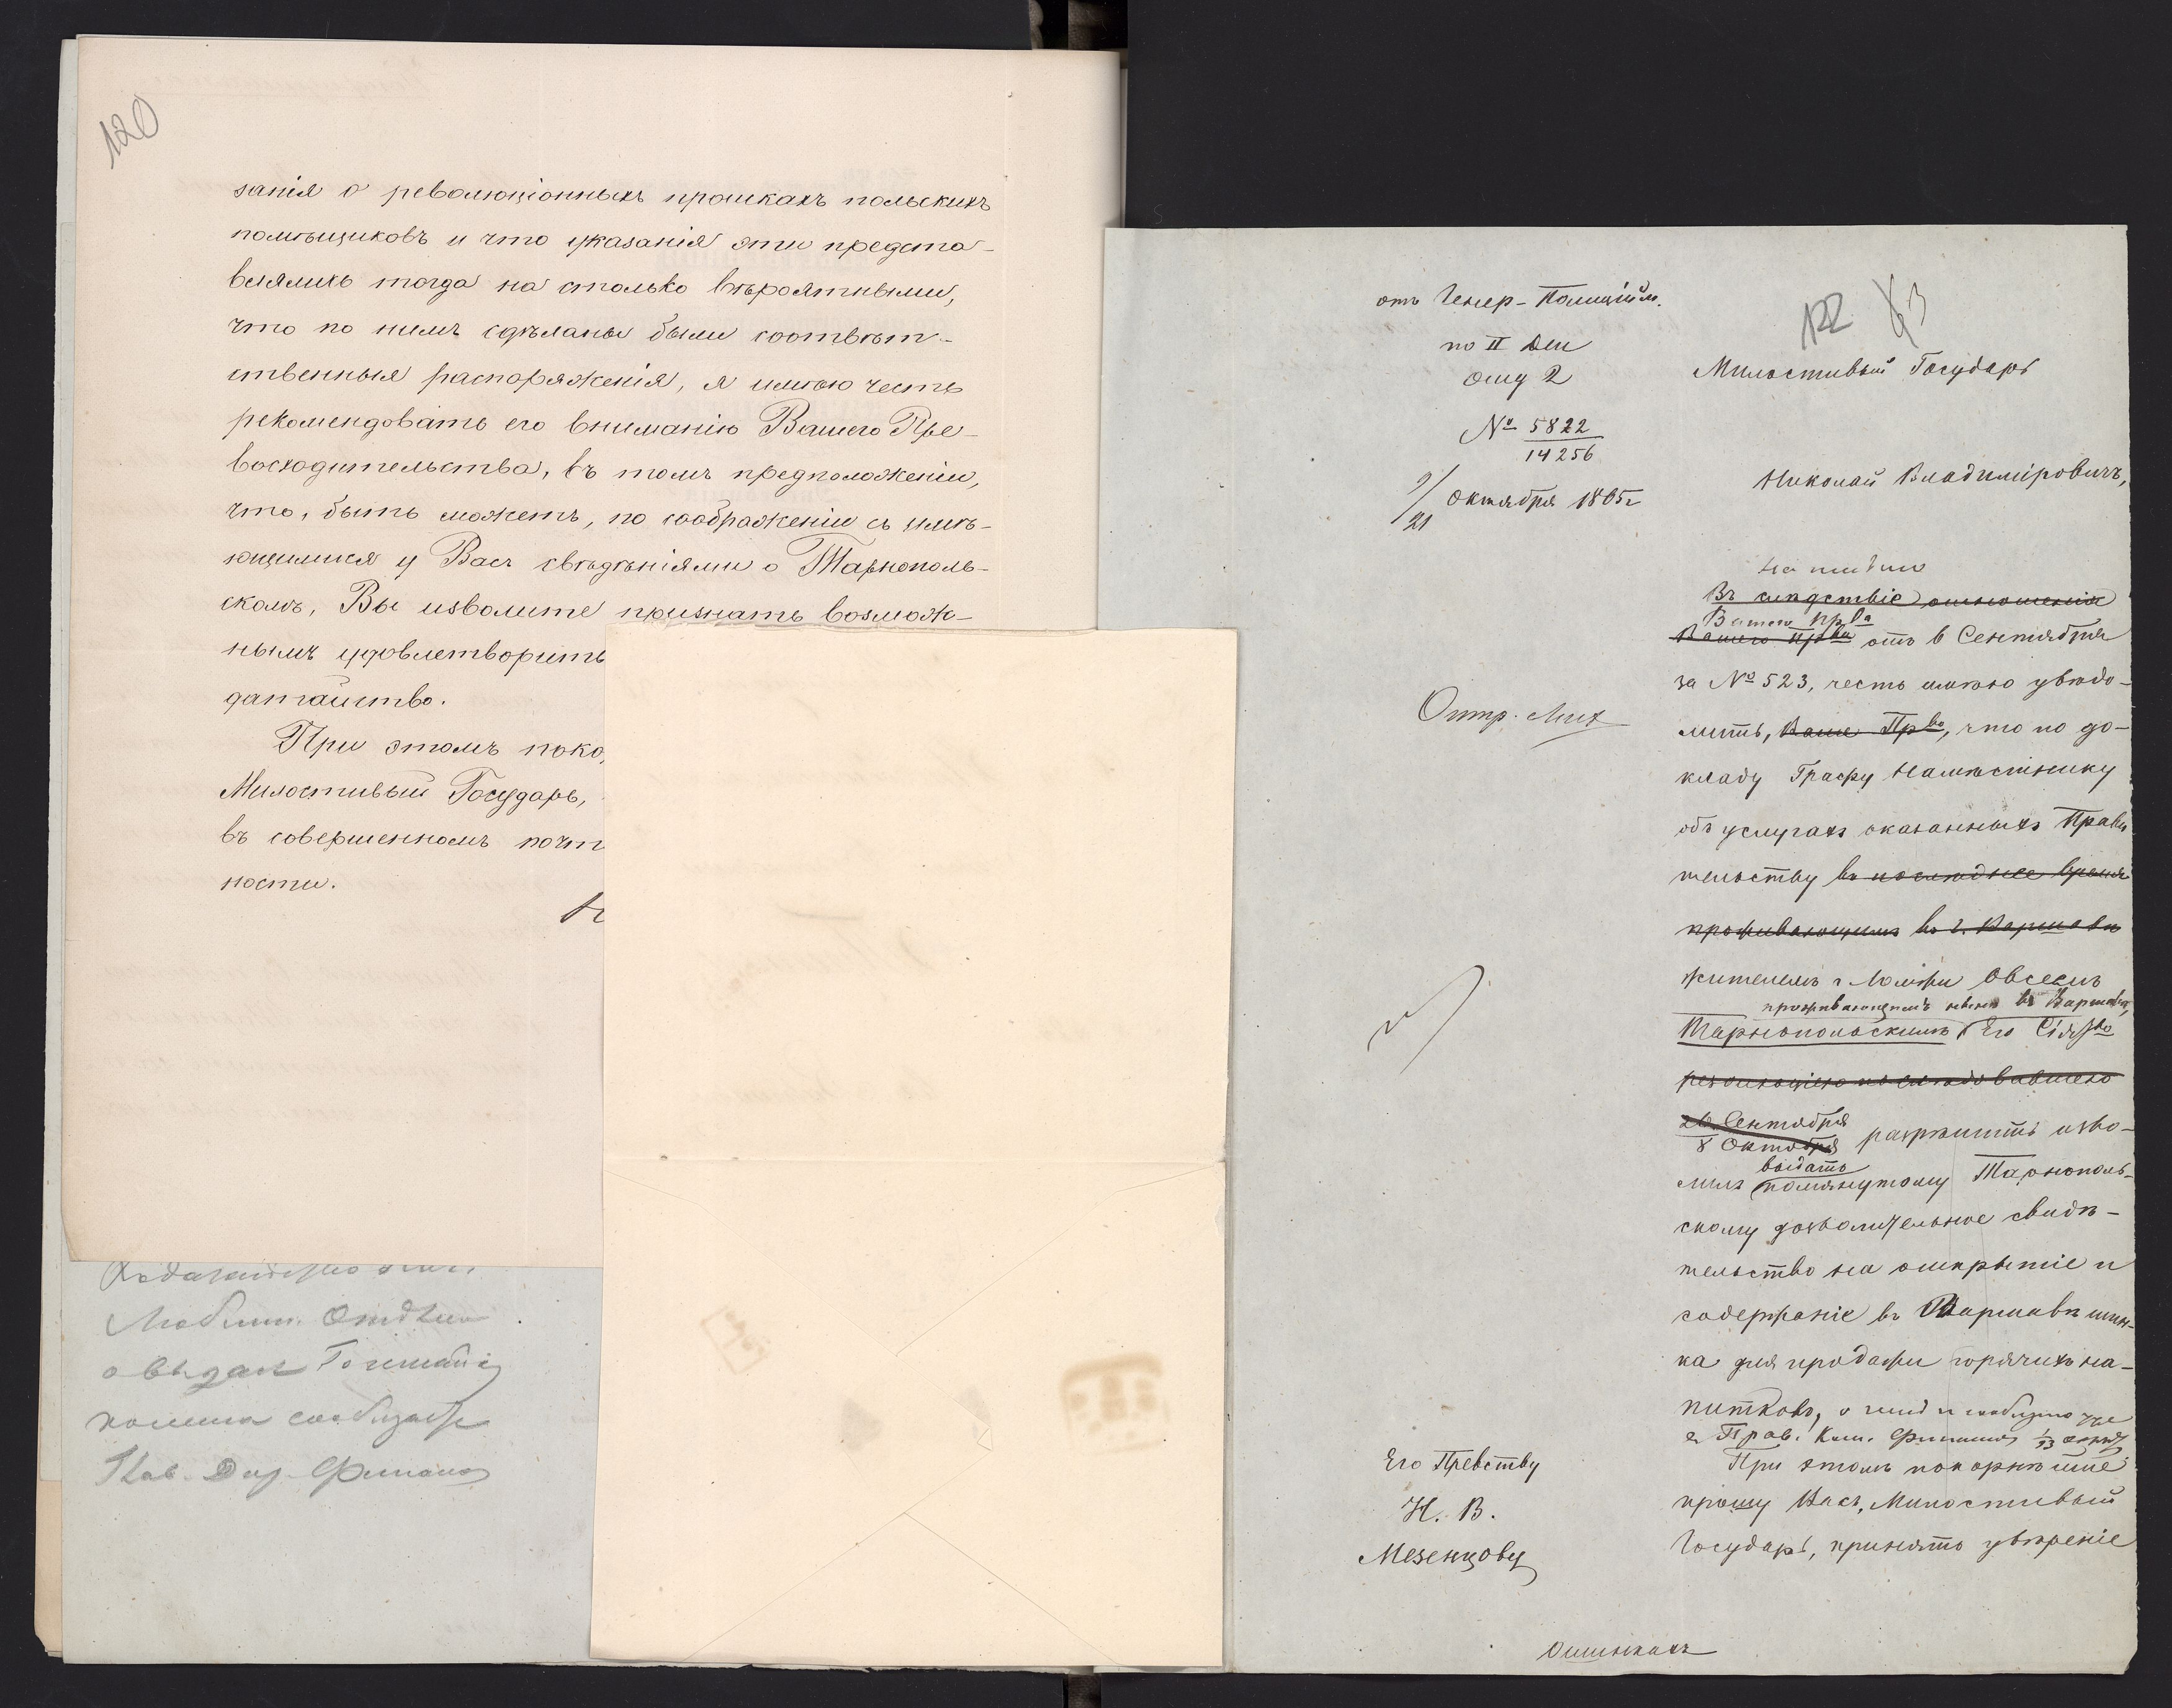 120
занія о революціонныхъ проискахъ польскихъ
помѣщиковъ и что указанія эти предста-
влялись тогда на столько вѣроятными,
что по нимъ сдѣланы были соотвѣт-
ственныя распоряженія, я имѣю честь
рекомендовать его вниманію Вашего Пре-
восходительства, въ томъ предположеніи,
что, быть можетъ, по соображеніи съ имѣ-
ющимися у Васъ свѣдѣніями о Тарнополь-
скомъ, Вы изволите признать возмож-
нымъ удовлетворить
датайство.
При этомъ поко
Милостивый Государь,
въ совершенномъ почт
ности.
о выдач
Глав. Дир. Финанс
отъ Генер-Полиціим.
по II
отд 2
№ 5822
14256
9/21 Октября 1865 г
Отпр.
Его Превству
Н. В.
Мезенцову
122 83
Милостивый Государь
Николай Владиміровичъ,
Въ слѣдствіе отношенія
Вашего Пр-ва
Вашего Пр-ва отъ 6 Сентября
за № 523, честь имѣю увѣдо-
мить, Ваше Пр-во, что по до-
кладу Графу Намѣстнику
объ услугахъ оказанныхъ Прави
тельству въ послѣднее время
проживающимъ въ г. Варшавѣ
жителемъ г. Ломжи Овсеемъ
проживающимъ нынѣ въ Варшавѣ,
Тарнопольскимъ Его Сія-во
резолюціею послѣдовавшею
26 Сентября
8 Октября разрѣшить изво-
выдать
лилъ помянутому Тарнополь-
скому дозволительное свидѣ-
тельство на открытіе и
содержаніе въ Варшавѣ шин-
ка для продажи горячихъ на-
питковъ, о чемъ и сообщено
Прав. Ком. Финансовъ 1/13
При этомъ покорнѣйше
прошу Васъ, Милостивый
Государь, принять увѣреніе